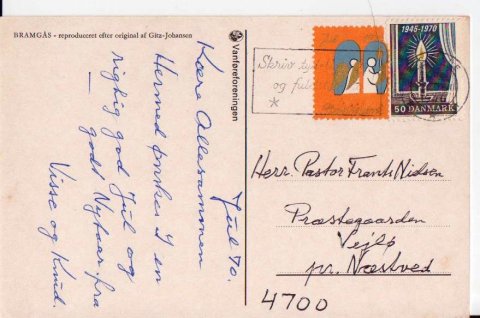 BRAMGÅS - reproduceret efter original af Gitz-Johansen
Vanføreforeningen
Jul 70.
Kære Allesammen
Hermed ønskes I en
rigtig god Jul og
godt Nytaar fra
Visse og Knud.
Skriv
og
1945-1970
50 DANMARK
Herr. Pastor Frants Nielsen
Præstegaarden
Vejlø
pr. Næstved
4700